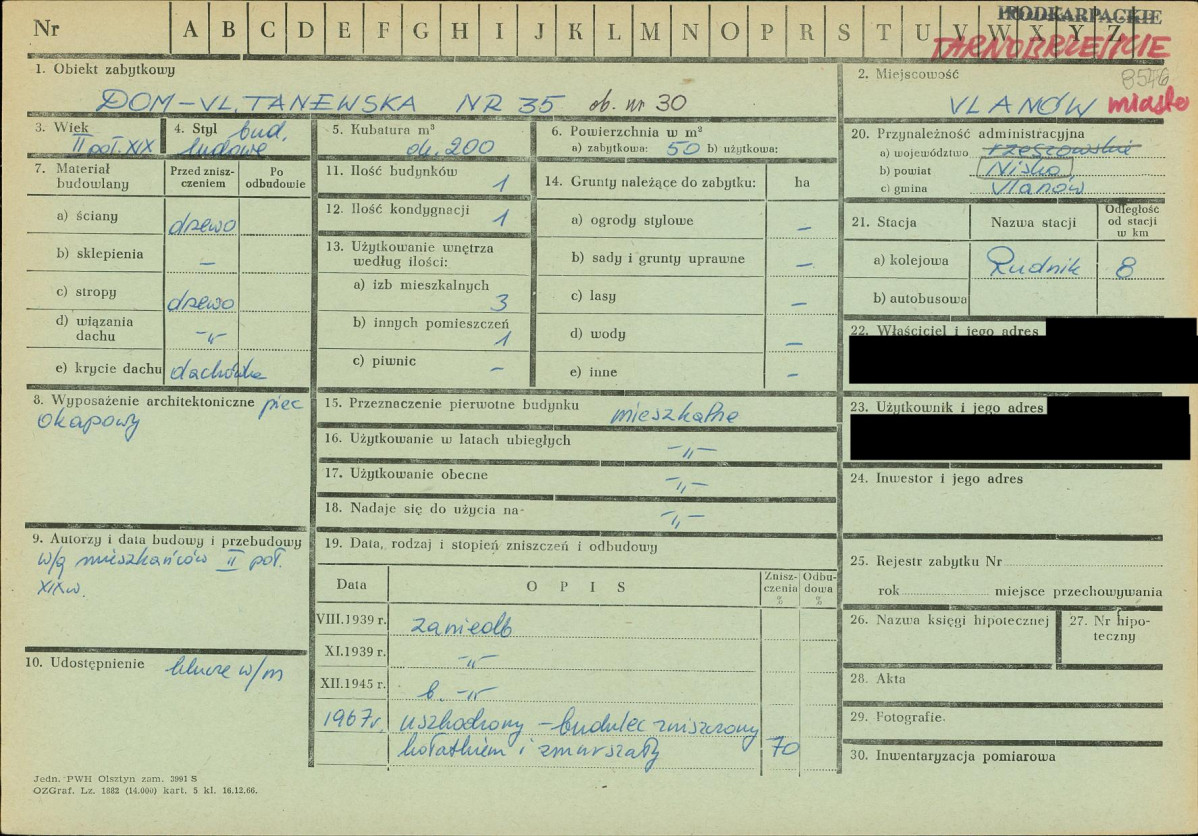 Nr A B C D E F G H I J K L M N O P R S T U V W X Y Z
PODKARPACKIE
TARNOBRZESKIE
1. Obiekt zabytkowy
DOM – UL. TANEWSKA NR 35 ob. nr 30
2. Miejscowość
8576
ULANÓW miasto
3. Wiek
II poł. XIX
4. Styl bud.
ludowe
5. Kubatura m³
ok. 200
6. Powierzchnia w m²
a) zabytkowa: 50 b) użytkowa:
7. Materiał budowlany
Przed zniszczeniem
Po odbudowie
a) ściany drzewo
b) sklepienia –
c) stropy drzewo
d) wiązania dachu -"-
e) krycie dachu dachówka
8. Wyposażenie architektoniczne piec
okapowy
9. Autorzy i data budowy i przebudowy
w/g mieszkańców II poł.
XIX w.
10. Udostępnienie klucze w/m
11. Ilość budynków 1
12. Ilość kondygnacji 1
13. Użytkowanie wnętrza
według ilości:
a) izb mieszkalnych 3
b) innych pomieszczeń 1
c) piwnic –
14. Grunty należące do zabytku: ha
a) ogrody stylowe –
b) sady i grunty uprawne –
c) lasy –
d) wody –
e) inne –
15. Przeznaczenie pierwotne budynku mieszkalne
16. Użytkowanie w latach ubiegłych -"-
17. Użytkowanie obecne -"-
18. Nadaje się do użycia na- -"-
19. Data, rodzaj i stopień zniszczeń i odbudowy
Data
O P I S
Zniszczenia %
Odbudowa %
VIII.1939 r. zaniedb
XI.1939 r. -"-
XII.1945 r. b. -"-
1967 r. uszkodzony – budulec zniszczony
kołatkiem i zmurszały 70
20. Przynależność administracyjna
a) województwo rzeszowskie
b) powiat Nisko
c) gmina Ulanów
21. Stacja
Nazwa stacji
Odległość od stacji w km
a) kolejowa Rudnik 8
b) autobusowa
22. Właściciel i jego adres
23. Użytkownik i jego adres
24. Inwestor i jego adres
25. Rejestr zabytku Nr
rok miejsce przechowywania
26. Nazwa księgi hipotecznej
27. Nr hipoteczny
28. Akta
29. Fotografie
30. Inwentaryzacja pomiarowa
Jedn. PWH Olsztyn zam. 3991 S
OZGraf. Lz. 1882 (14.000) kart. 5 kl. 16.12.66.